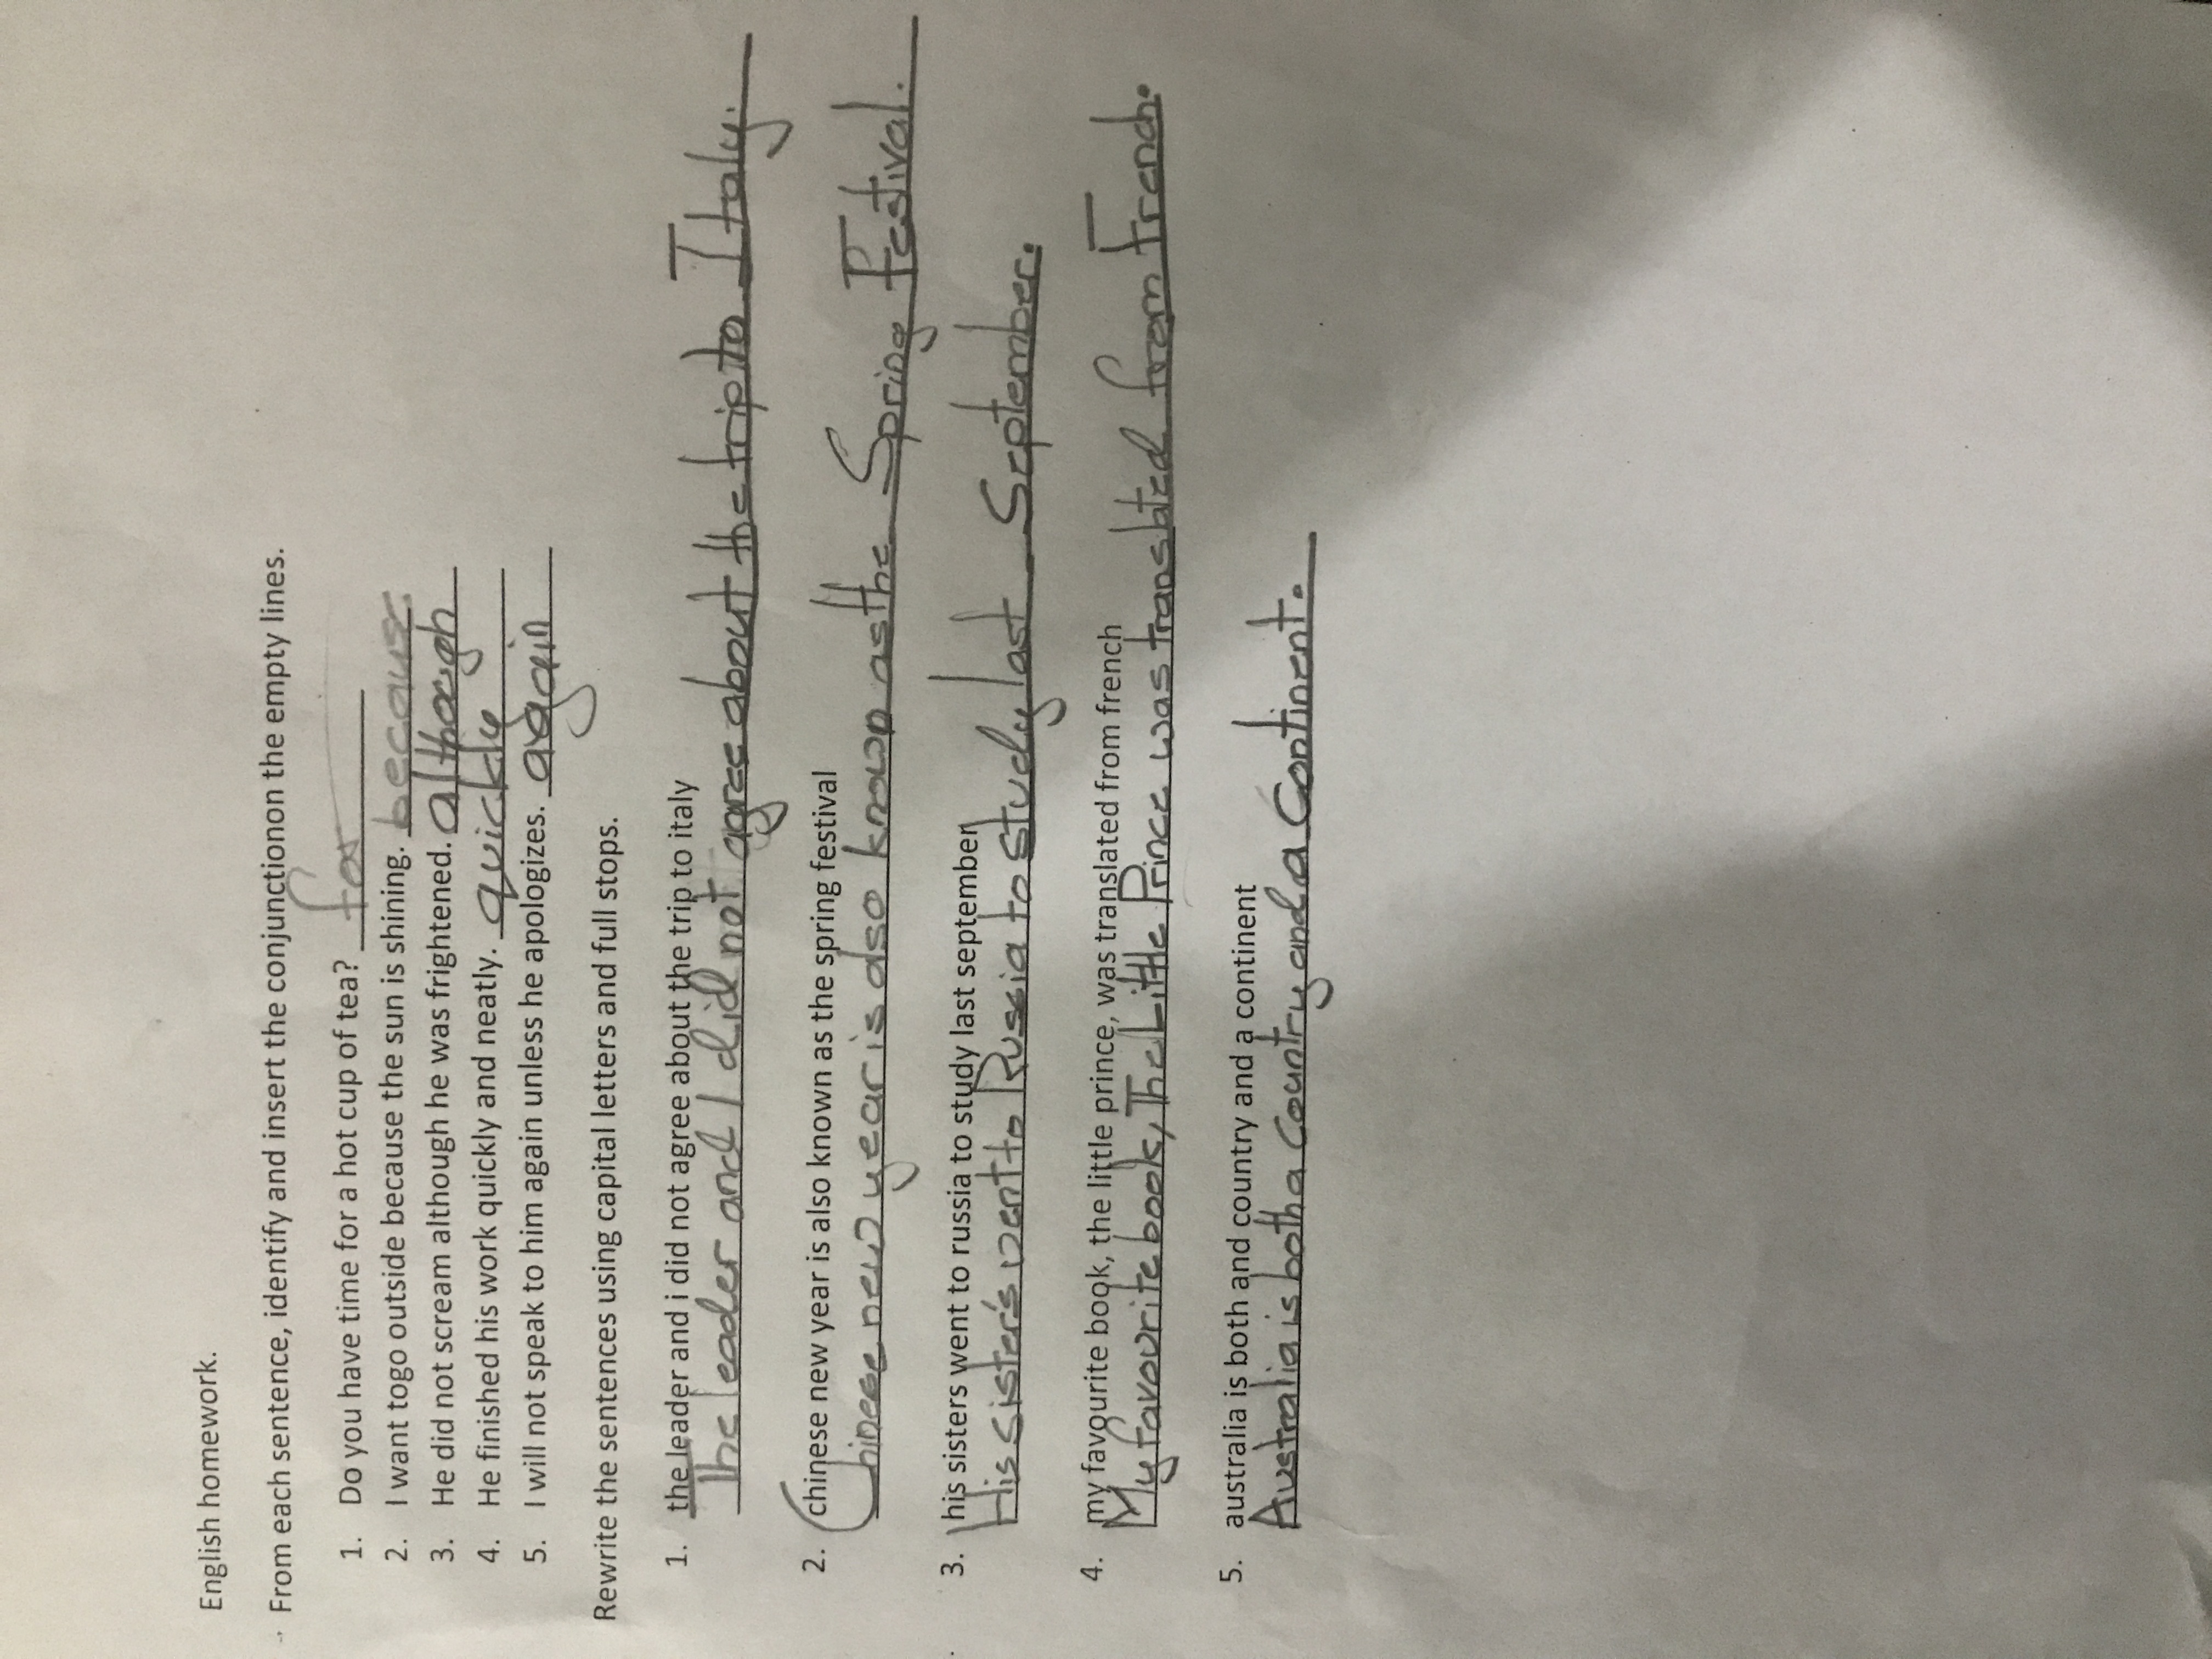 English homework.
From each sentence, identify and insert the conjunctionon the empty lines.
1. Do you have time for a hot cup of tea? for
2. I want togo outside because the sun is shining. because
3. He did not scream although he was frightened. although
4. He finished his work quickly and neatly. quickly
5. I will not speak to him again unless he apologizes. again
Rewrite the sentences using capital letters and full stops.
1. the leader and i did not agree about the trip to italy
The leader and I did not agree about the trip to Italy.
2. chinese new year is also known as the spring festival
Chinese new year is also known as the Spring Festival.
3. his sisters went to russia to study last september
His sister's went to Russia to study last September.
4. my favourite book, the little prince, was translated from french
My favourite book, The Little Prince was translated from French.
5. australia is both and country and a continent
Australia is both a Country and a Continent.